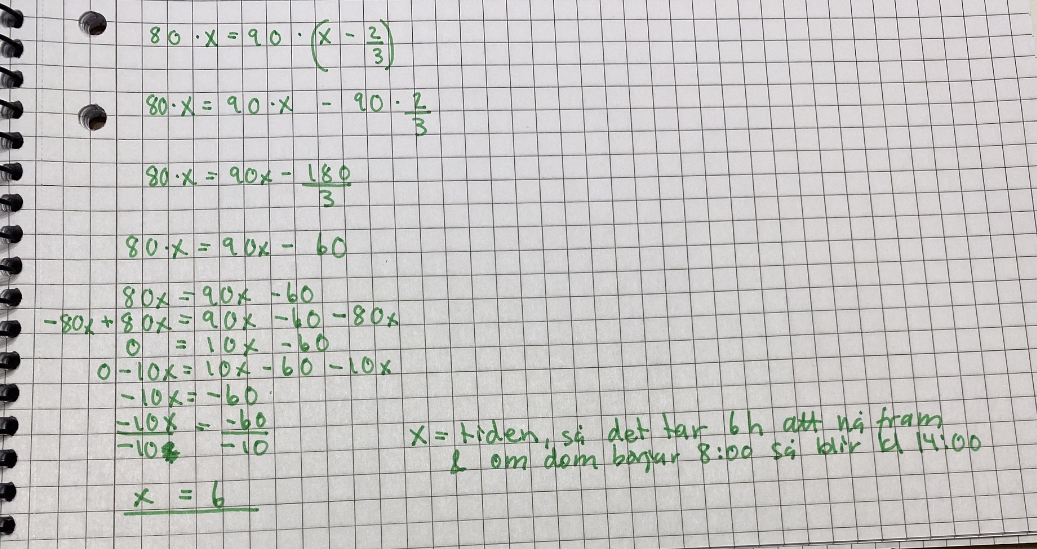 80 · x = 90 · (x - 2/3)
80 · x = 90 · x - 90 · 2/3
80 · x = 90x - 180/3
80 · x = 90x - 60
80x = 90x - 60
-80x + 80x = 90x - 60 - 80x
0 = 10x - 60
0 - 10x = 10x - 60 - 10x
-10x = -60
-10x/-10 = -60/-10
x = 6
x = tiden, så det tar 6h att nå fram
& om dom börjar 8:00 så blir kl 14:00